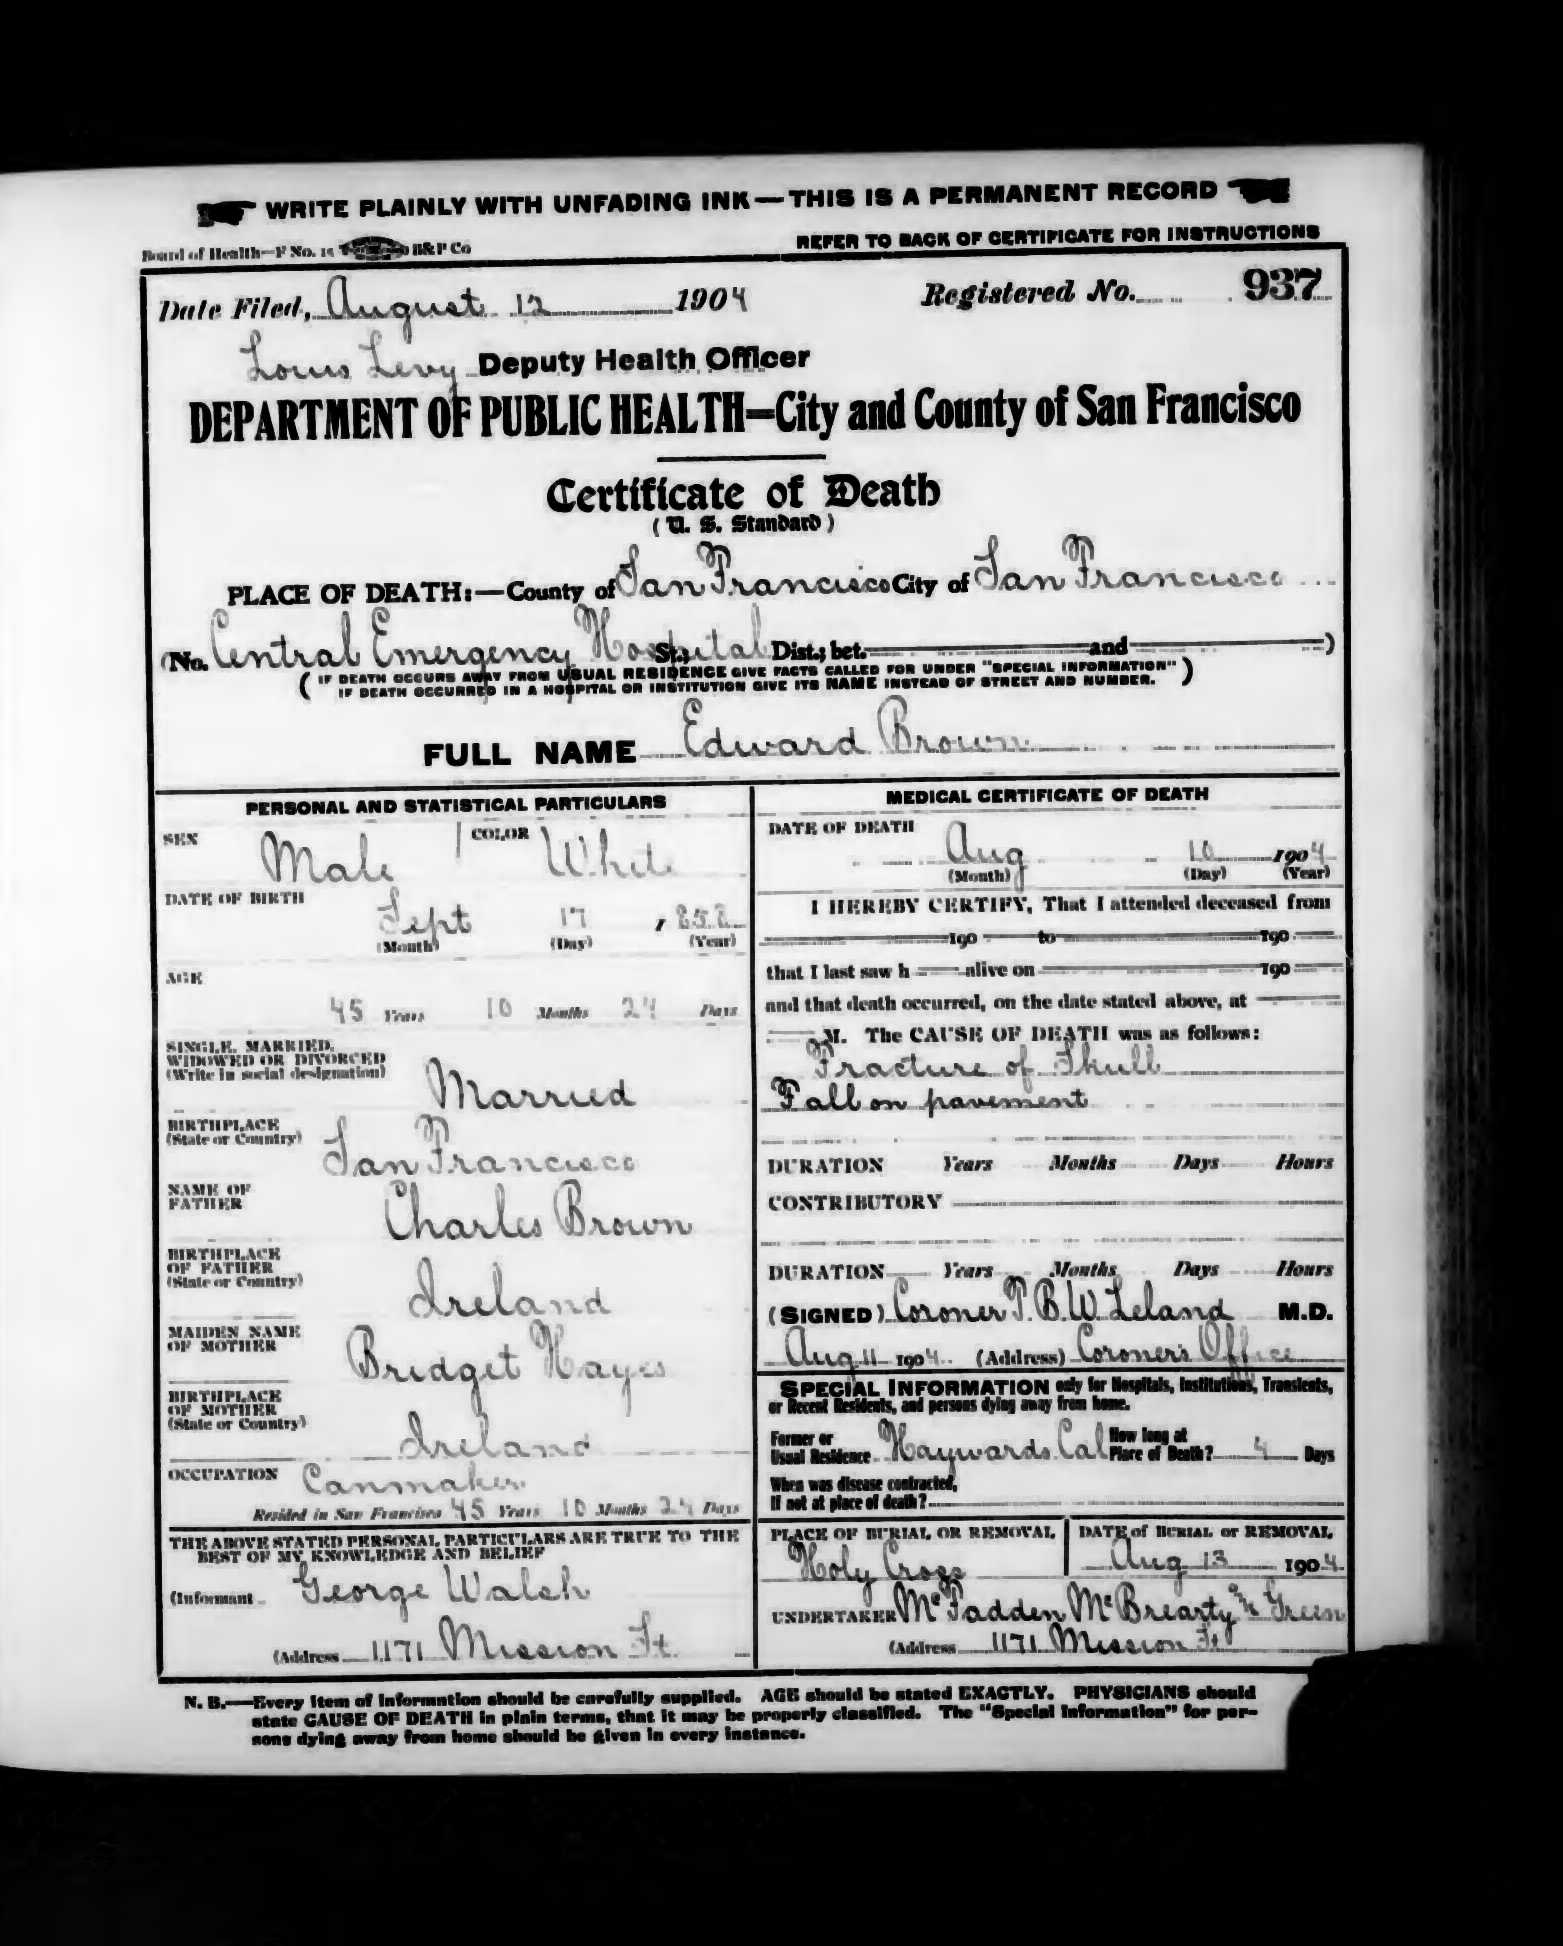 WRITE PLAINLY WITH UNFADING INK — THIS IS A PERMANENT RECORD
Board of Health—F No. 15 B&P Co
REFER TO BACK OF CERTIFICATE FOR INSTRUCTIONS
Date Filed, August 12 1904
Registered No. 937
Louis Levy Deputy Health Officer
DEPARTMENT OF PUBLIC HEALTH=City and County of San Francisco
Certificate of Death
(U. S. Standard)
PLACE OF DEATH:—County of San Francisco City of San Francisco
(No. Central Emergency Hospital St.; Dist.; bet. and )
( IF DEATH OCCURS AWAY FROM USUAL RESIDENCE GIVE FACTS CALLED FOR UNDER "SPECIAL INFORMATION"
IF DEATH OCCURRED IN A HOSPITAL OR INSTITUTION GIVE ITS NAME INSTEAD OF STREET AND NUMBER. )
FULL NAME Edward Brown
PERSONAL AND STATISTICAL PARTICULARS
SEX Male COLOR White
DATE OF BIRTH
Sept 17 , 858
(Month) (Day) (Year)
AGE
45 Years 10 Months 24 Days
SINGLE, MARRIED,
WIDOWED OR DIVORCED
(Write in social designation)
Married
BIRTHPLACE
(State or Country)
San Francisco
NAME OF
FATHER
Charles Brown
BIRTHPLACE
OF FATHER
(State or Country)
Ireland
MAIDEN NAME
OF MOTHER
Bridget Hayes
BIRTHPLACE
OF MOTHER
(State or Country)
Ireland
OCCUPATION Canmaker
Resided in San Francisco 45 Years 10 Months 24 Days
THE ABOVE STATED PERSONAL PARTICULARS ARE TRUE TO THE
BEST OF MY KNOWLEDGE AND BELIEF
(Informant George Walsh
(Address 1171 Mission St.
MEDICAL CERTIFICATE OF DEATH
DATE OF DEATH
Aug 10 1904
(Month) (Day) (Year)
I HEREBY CERTIFY, That I attended deceased from
190 to 190
that I last saw h alive on 190
and that death occurred, on the date stated above, at
M. The CAUSE OF DEATH was as follows:
Fracture of Skull
Fall on pavement
DURATION Years Months Days Hours
CONTRIBUTORY
DURATION Years Months Days Hours
(SIGNED) Coroner T. B. W. Leland M.D.
Aug 11 1904 (Address) Coroner's Office
SPECIAL INFORMATION only for Hospitals, Institutions, Transients,
or Recent Residents, and persons dying away from home.
Former or
Usual Residence Haywards Cal
How long at
Place of Death? 4 Days
When was disease contracted,
If not at place of death?
PLACE OF BURIAL OR REMOVAL
Holy Cross
DATE of BURIAL or REMOVAL
Aug 13 1904
UNDERTAKER McFadden McBrearty & Green
(Address 1171 Mission St
N. B.—Every item of information should be carefully supplied. AGE should be stated EXACTLY. PHYSICIANS should
state CAUSE OF DEATH in plain terms, that it may be properly classified. The "Special Information" for per-
sons dying away from home should be given in every instance.